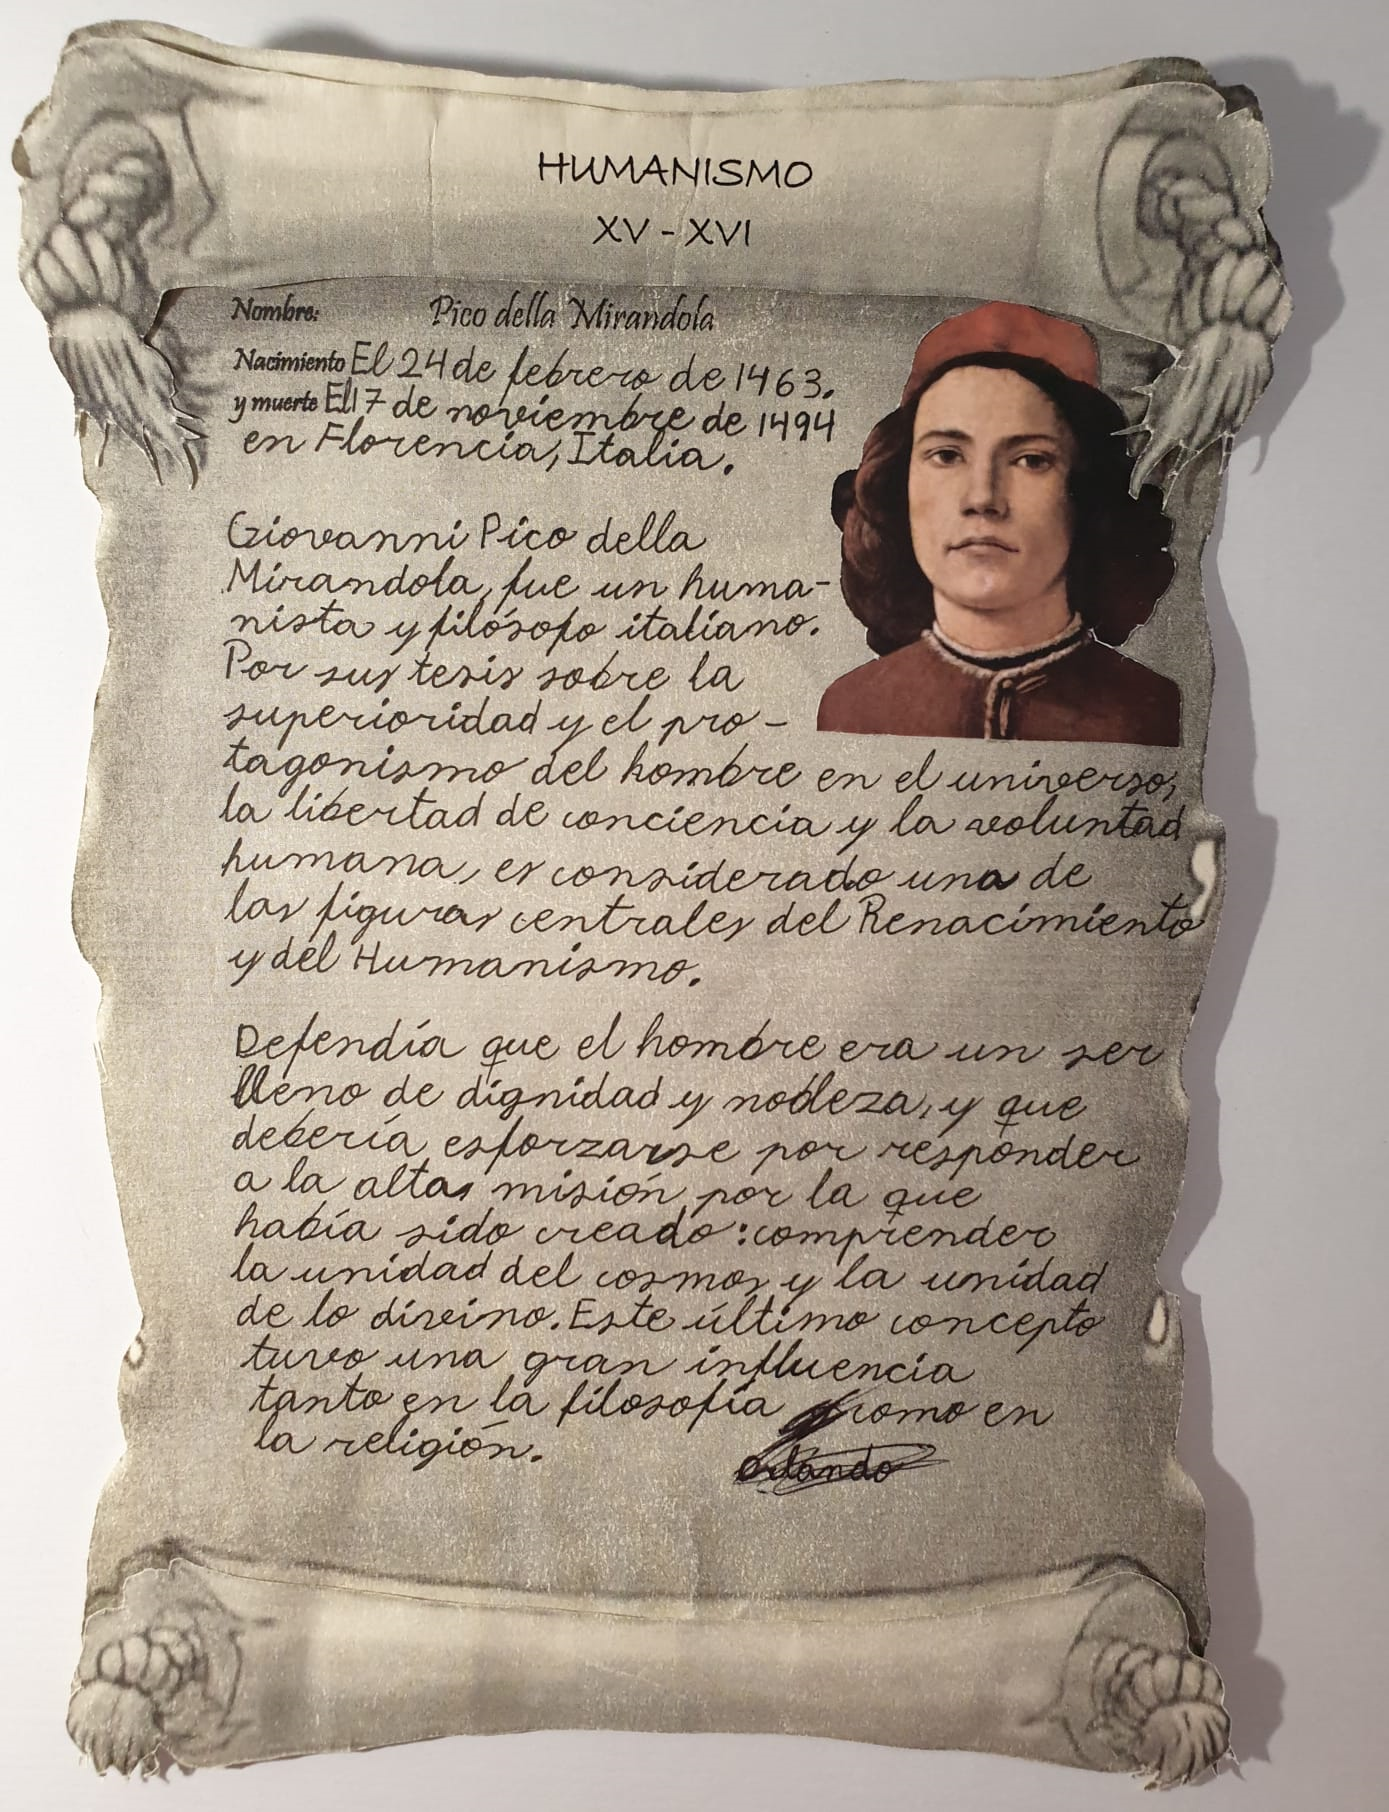 HUMANISMO
XV - XVI
Nombre: Pico della Mirandola
Nacimiento El 24 de febrero de 1463.
y muerte El 17 de noviembre de 1494
en Florencia, Italia.
Giovanni Pico della
Mirandola, fue un huma-
nista y filósofo italiano.
Por sus tesis sobre la
superioridad y el pro-
tagonismo del hombre en el universo,
la libertad de conciencia y la voluntad
humana, es considerado una de
las figuras centrales del Renacimiento
y del Humanismo.
Defendía que el hombre era un ser
lleno de dignidad y nobleza, y que
debería esforzarse por responder
a la altas misión por la que
había sido creado: comprender
la unidad del cosmos y la unidad
de lo divino. Este último concepto
tuvo una gran influencia
tanto en la filosofía como en
la religión.
Orlando